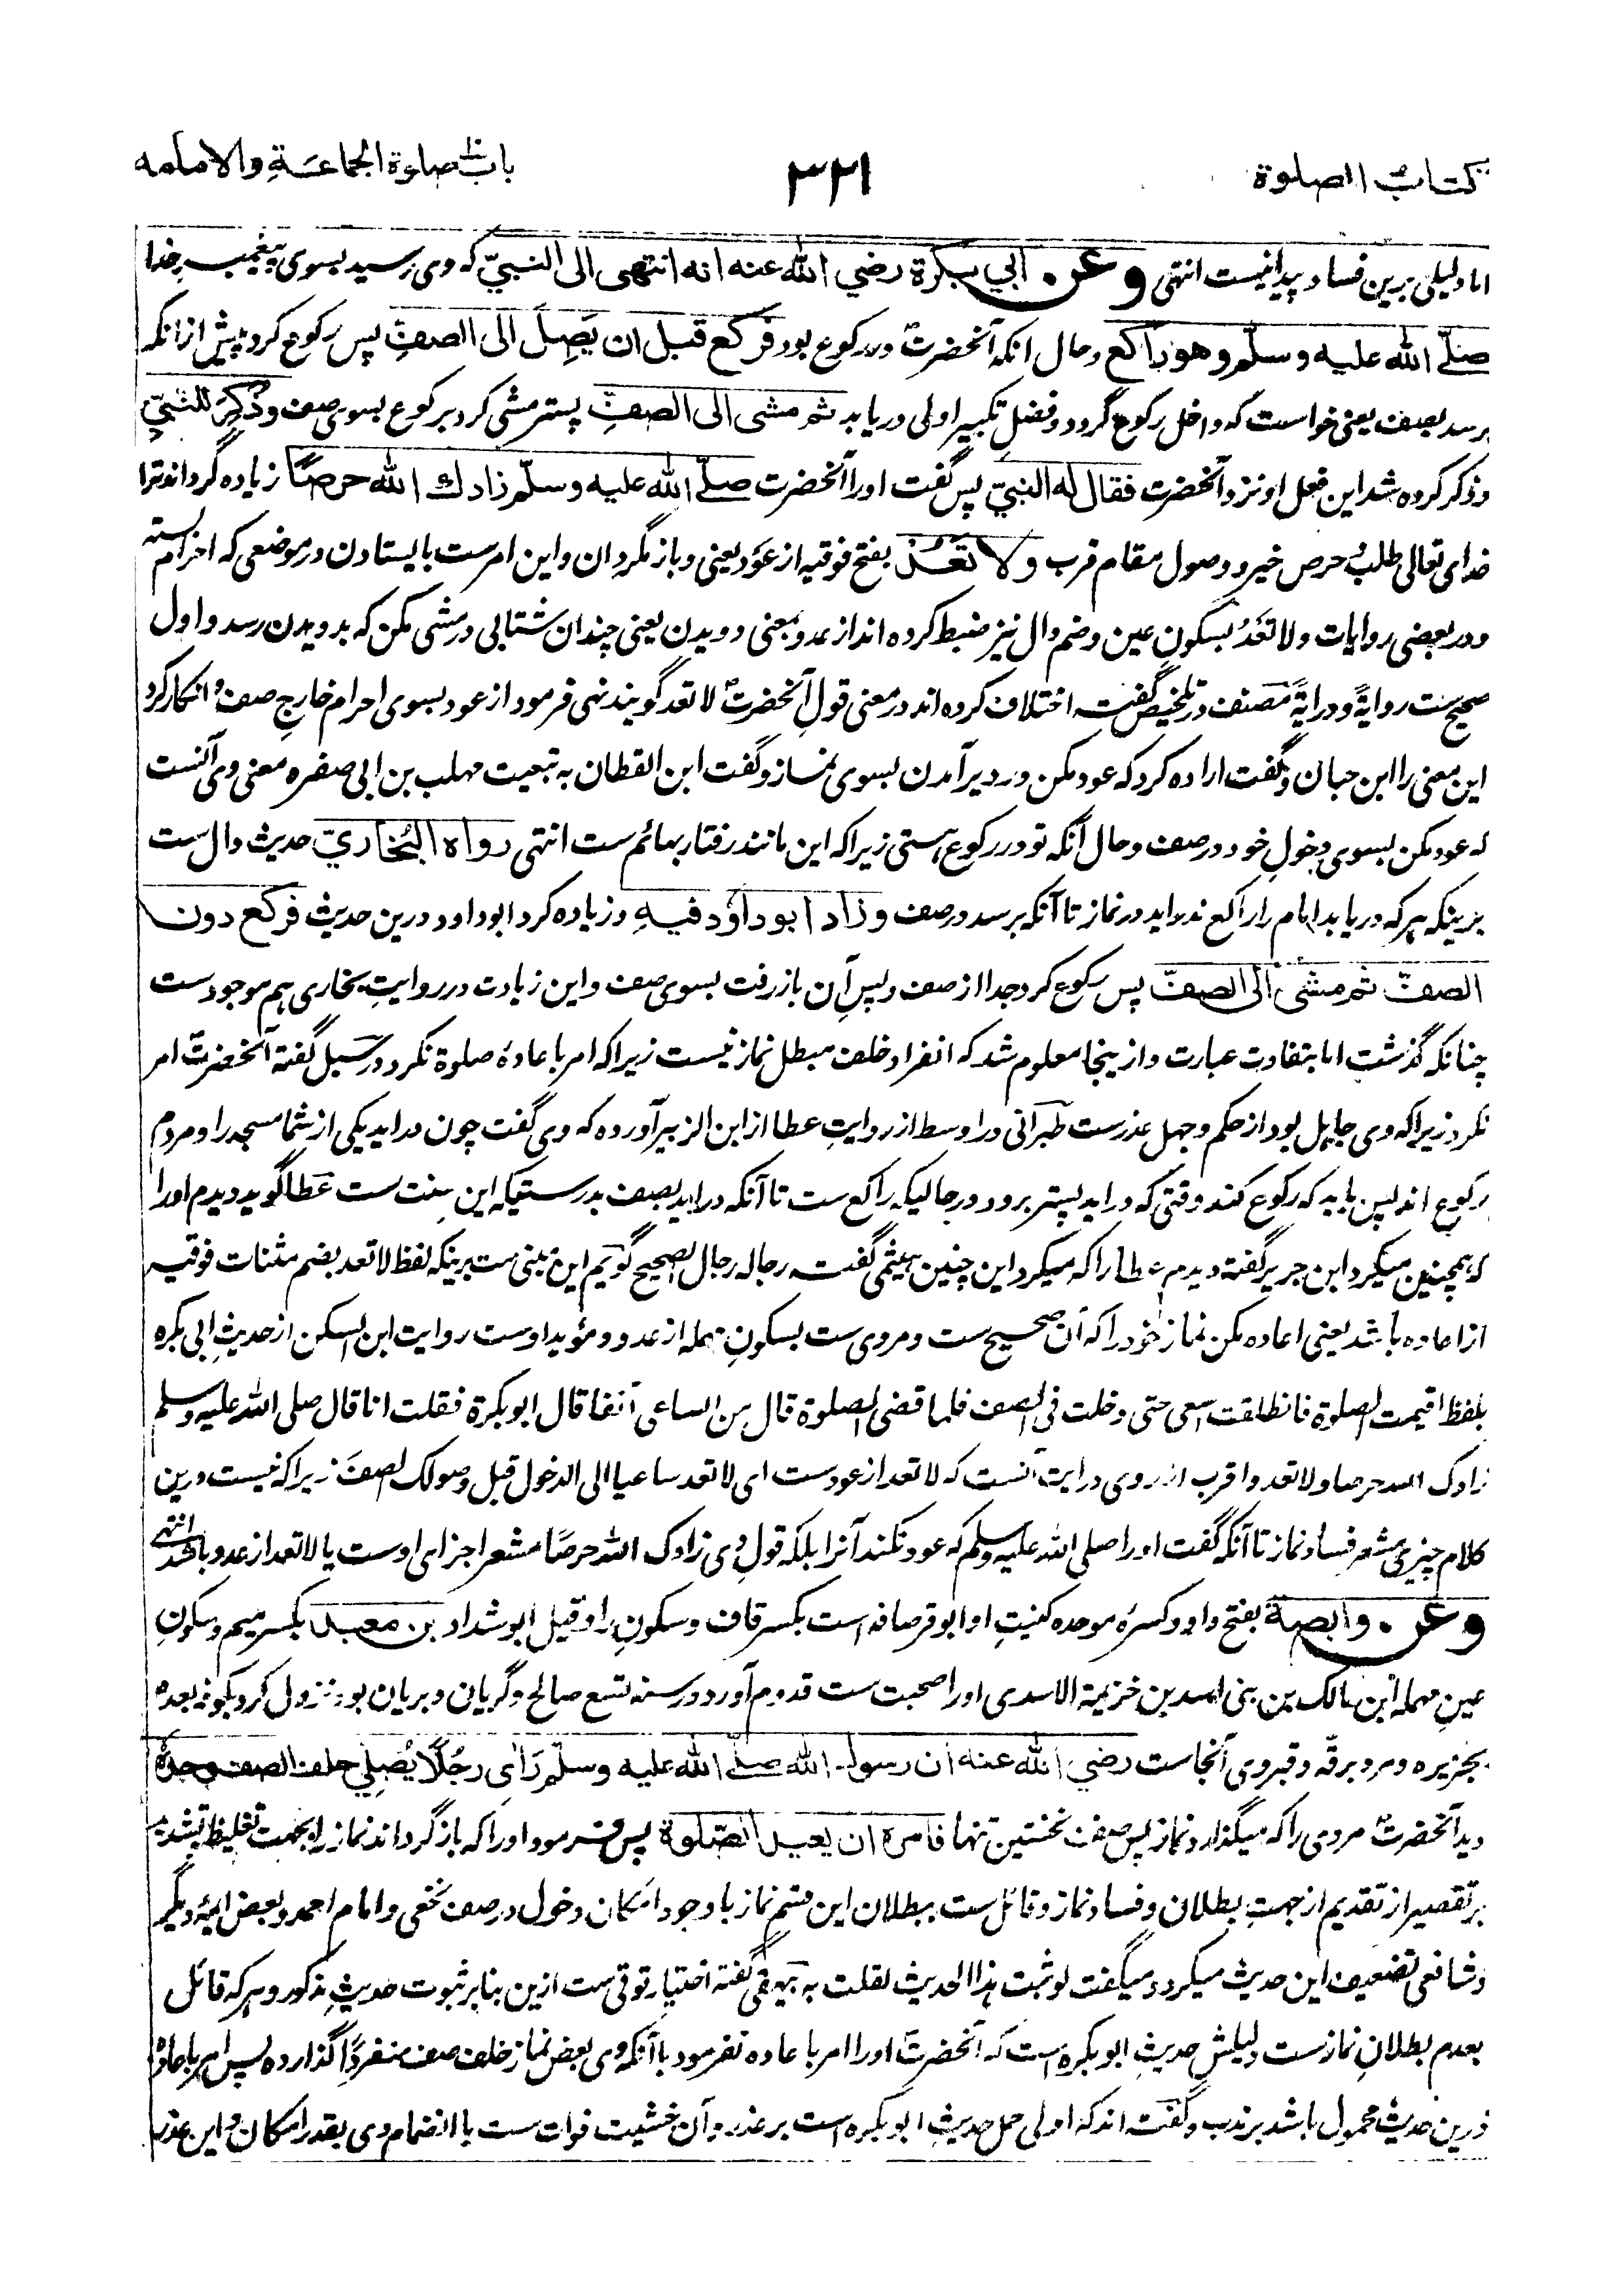 کتاب الصلوة
۳۲۱
باب صلوة الجماعة والامامة
اما دلیلی برین فساد پیدا نیست انتهی وعن ابي بكرة رضي الله عنه انه انتهى الى النبيّ که وی رسید بسوی پیغمبر خدا
صلّے الله عليه وسلّم وهو راكع وحال انکه آنحضرت در رکوع بود فركع قبل ان يَصِلَ الى الصفِّ پس رکوع کرد پیش از انکه
برسد بصف یعنی خواست که داخل رکوع گردد و فضلِ تکبیر اولی دریابد ثم مشى الى الصفِّ پستر مشی کرد بر کوع بسوی صف وذُكِرَ للنبيِّ
و ذکر کرده شد این فعل او نزد آنحضرت فقال له النبيّ پس گفت او را آنحضرت صلّے الله عليه وسلّم زادك الله حرصًا زیاده گرداند ترا
خدای تعالی طلبُ حرص خیر و وصول مقام قرب ولا تَعُدْ بفتح فوقیه از عَود یعنی و باز مگرد ان و این امرست بایستادن در موضعی که احرام بسته
و در بعضی روایات ولا تعدُ بسکونِ عین و ضم دال نیز ضبط کرده اند از عدو بمعنی دویدن یعنی چندان شتابی در مشی مکن که بدویدن رسد و اول
صحیح ست روایةً و درایةً مصنف در تلخیص گفت اختلاف کرده اند در معنی قولِ آنحضرت لا تعد گویند نهی فرمود از عود بسوی احرام خارجِ صف و انکار کرد
این معنی را ابن حبان و گفت اراده کرد که عود مکن در دیر آمدن بسوی نماز و گفت ابن القطان به تبعیت مهلب بن ابی صفره معنی وی آنست
که عود مکن بسوی دخولِ خود در صف و حال آنکه تو در رکوع هستی زیرا که این مانند رفتار بهائم ست انتهی رواه البُخاريّ حدیث دال ست
برینکه هر که دریابد امام را راکع ندراید در نماز تا آنکه برسد در صف وزاد ابو داوٗد فيهِ و زیاده کرد ابو داود درین حدیث فركع دون
الصفّ ثم مشى الى الصفّ پس رکوع کرد جدا از صف و پسِ آن باز رفت بسوی صف و این زیادت در روایتِ بخاری هم موجودست
چنانکه گذشت اما بتفاوت عبارت و ازینجا معلوم شد که انفراد خلف مبطل نماز نیست زیرا که امر باعادهٔ صلوة نکرد در سبل گفته آنحضرت امر
نکرد زیرا که وی جاهل بود از حکم و جهل عذرست طبرانی در اوسط از روایتِ عطا از ابن الزبیر آورده که وی گفت چون دراید یکی از شما مسجد را و مردم
برکوع اند پس باید که رکوع کند وقتی که دراید پستر برود در حالیکه راکع ست تا آنکه دراید بصف بدرستیکه این سنت ست عطا گوید دیدم او را
که همچنین میکرد ابن جریر گفته دیدم عطا را که میکرد این چنین هیثمی گفت رجاله رجال الصحیح گویم این مبنی ست برینکه لفظ لا تعد بضم مثنات فوقیه
از اعاده باشد یعنی اعاده مکن نماز خود را که آن صحیح ست و مروی ست بسکونِ مهمله از عدو و مؤید اوست روایت ابن السکن از حدیثِ ابی بکره
بلفظ اقیمت الصلوة فانطلقت اسعی حتی دخلت فی الصف فلما قضی الصلوة قال من الساعی آنفا قال ابوبکرة فقلت انا قال صلی الله علیه وسلم
زادک الله حرصا ولا تعد و اقرب از روی درایت آنست که لا تعد از عودست ای لا تعد ساعیا الی الدخول قبل وصولک الصف زیرا که نیست درین
کلام چیزی مشعر فساد نماز تا آنکه گفت او را صلی الله علیه وسلم که عود نکند آنرا بلکه قولِ وی زادک الله حرصًا مشعر اجزای اوست یا لا تعد از عدو باشد انتهی
وعن وابصة بفتح واو و کسرهٔ موحده کنیتِ او ابو قرصافه است بکسر قاف و سکونِ را و قیل ابو شداد بن معبد بکسر میم و سکونِ
عینِ مهمله ابن مالک من بنی اسد بن خزیمة الاسدی او را صحبت ست قدوم آورد در سنه تسع صالح و گریان و بریان بود نزول کرد بکوفه بعده
بجزیره و مرد برقّه و قبروی آنجاست رضي الله عنه ان رسول الله صلّے الله عليه وسلّم رَاٰى رجُلًا يُصلِي خلف الصف وحدهٗ
دید آنحضرت مردی را که میگذارد نماز پس صف نخستین تنها فامره ان يعيد الصّلوة پس فرمود او را که باز گرداند نماز را بجهت تغلیظ و تشدید
بر تقصیر از تقدیم از جهتِ بطلان و فساد نماز و قائل ست ببطلان این قسم نماز با وجود امکان دخول در صف نخعی و امام احمد و بعض ائمهٔ دیگر
و شافعی تضعیف این حدیث میکرد و میگفت لو ثبت هذا الحدیث لقلت به بیهقی گفته اختیار توقی ست ازین بنا بر ثبوت حدیثِ مذکور و هر که قائل
بعدم بطلانِ نمازست دلیلش حدیثِ ابوبکره است که آنحضرت او را امر باعاده نفرمود با آنکه وی بعض نماز خلف صف منفردًا گذارده پس امر باعادهٔ
درین حدیث محمول باشد بر ندب و گفته اند که اولی حمل حدیثِ ابوبکره است بر عذر و آن خشیت فوات ست با انضمام وی بقدر امکان و این عذر